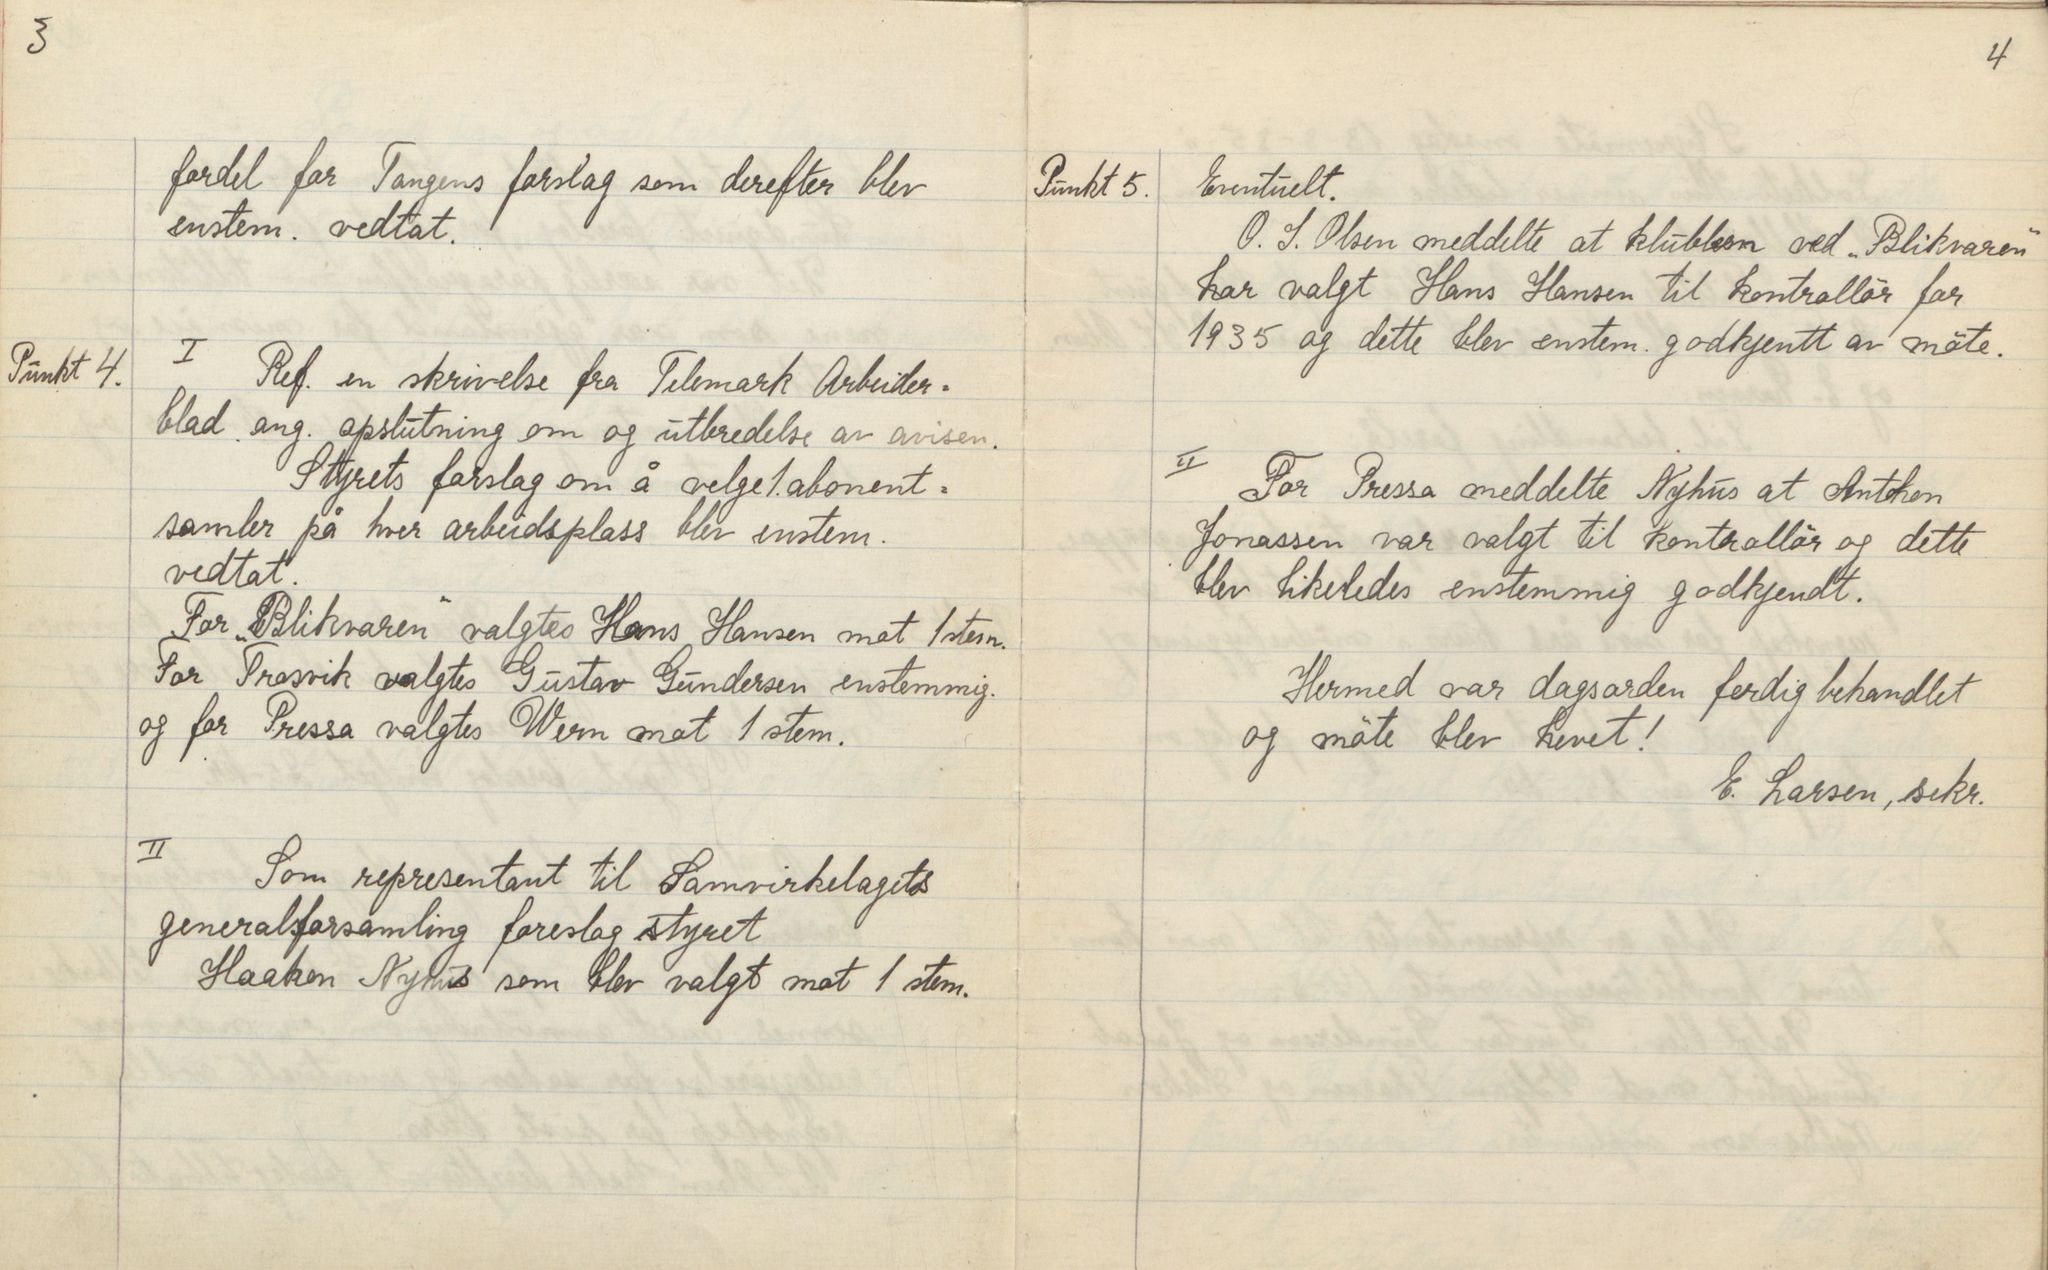 3
fordel for Tangens forslag som derefter blev
enstem. vedtat.
Punkt 4.
I
Ref. en skrivelse fra Telemark Arbeider-
blad ang. opslutning om og utbredelse av avisen.
Styrets forslag om å velge 1. abonent-
samler på hver arbeidsplass blev enstem.
vedtat.
For „Blikvaren" valgtes Hans Hansen mot 1 stem.
For Trosvik valgtes Gustav Gundersen enstemmig.
og for Pressa valgtes Wern mot 1 stem.
II
Som representant til Samvirkelagets
generalforsamling foreslog styret
Haakon Nyhus som blev valgt mot 1 stem.
4
Punkt 5.
Eventuelt.
O. S. Olsen meddelte at klubben ved „Blikvaren"
har valgt Hans Hansen til kontrollör for
1935 og dette blev enstem. godkjentt av möte.
II
For Pressa meddelte Nyhus at Anthon
Jonassen var valgt til kontrollör og dette
blev likeledes enstemmig godkjendt.
Hermed var dagsorden ferdig behandlet
og möte blev hevet!
E. Larsen, sekr.